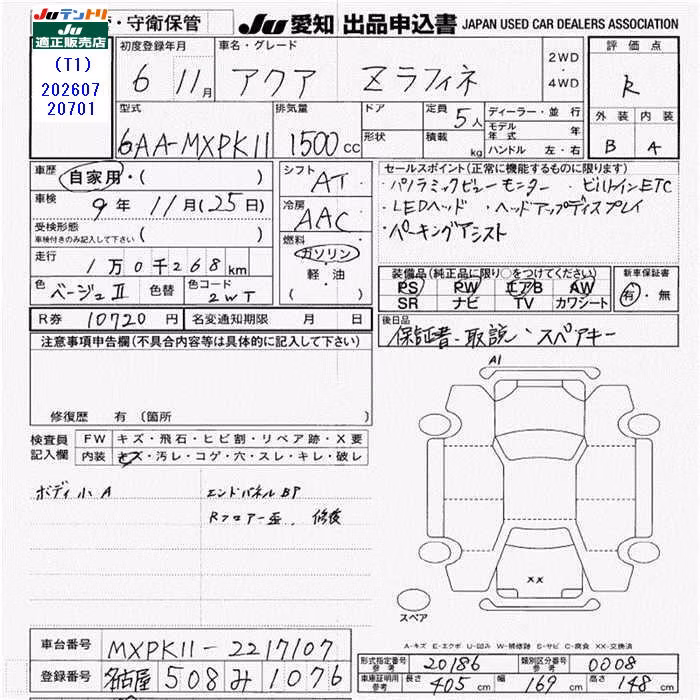 Juテントリ ・守衛保管 Ju 愛知 出品申込書 JAPAN USED CAR DEALERS ASSOCIATION
Ju 適正販売店
(T1)
202607
20701
初度登録年月 車名・グレード 2WD ・ 4WD 評価点
6 11月 アクア Zラフィネ R
型式 排気量 ドア 定員 5人 ディーラー・並行 外装 内装
6AA-MXPK11 1500cc 形状 積載 kg モデル年式 年 B A
ハンドル 左・右
車歴 自家用・( ) シフト AT セールスポイント(正常に機能するものに限ります)
車検 9年 11月(25日) 冷房 AAC ・パノラミックビューモニター ・ビルトインETC
・LEDヘッド ・ヘッドアップディスプレイ
受検形態 車検付きのみ記入して下さい ( ) 燃料 ガソリン・軽・油 ( ) ・パーキングアシスト
走行 1万0千268km 装備品(純正品に限り○をつけてください) 新車保証書
色 ベージュII 色替 色コード 2WT PS PW エアB AW 有・無
SR ナビ TV カワシート
R券 10720円 名変通知期限 月 日 後日品
保証書・取説、スペアキー
注意事項申告欄(不具合内容等は具体的に記入して下さい)
A1
修復歴 有(箇所 )
検査員記入欄 FW キズ・飛石・ヒビ割・リペア跡・X要
内装 キズ・汚レ・コゲ・穴・スレ・キレ・破レ
ボディ小A エンドパネルBP
Rフロアー歪、修復
XX
スペア
A-キズ E-エクボ U-凹み W-補修跡 S-サビ C-腐食 XX-交換済
車台番号 MXPK11-2217107
形式指定番号 参考 20186 類別区分番号 参考 0008
登録番号 名古屋 508 み 1076
車庫証明用 参考 長さ 405cm 幅 169cm 高さ 148cm